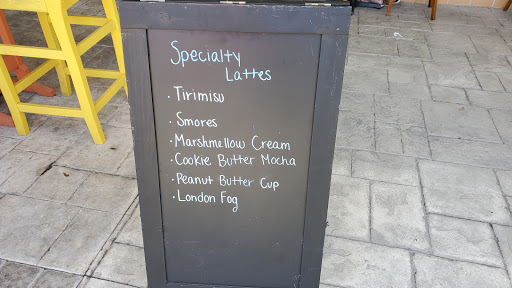 Specialty
Lattes
· Tirimisu
· Smores
· Marshmellow Cream
· Cookie Butter Mocha
· Peanut Butter Cup
· London Fog